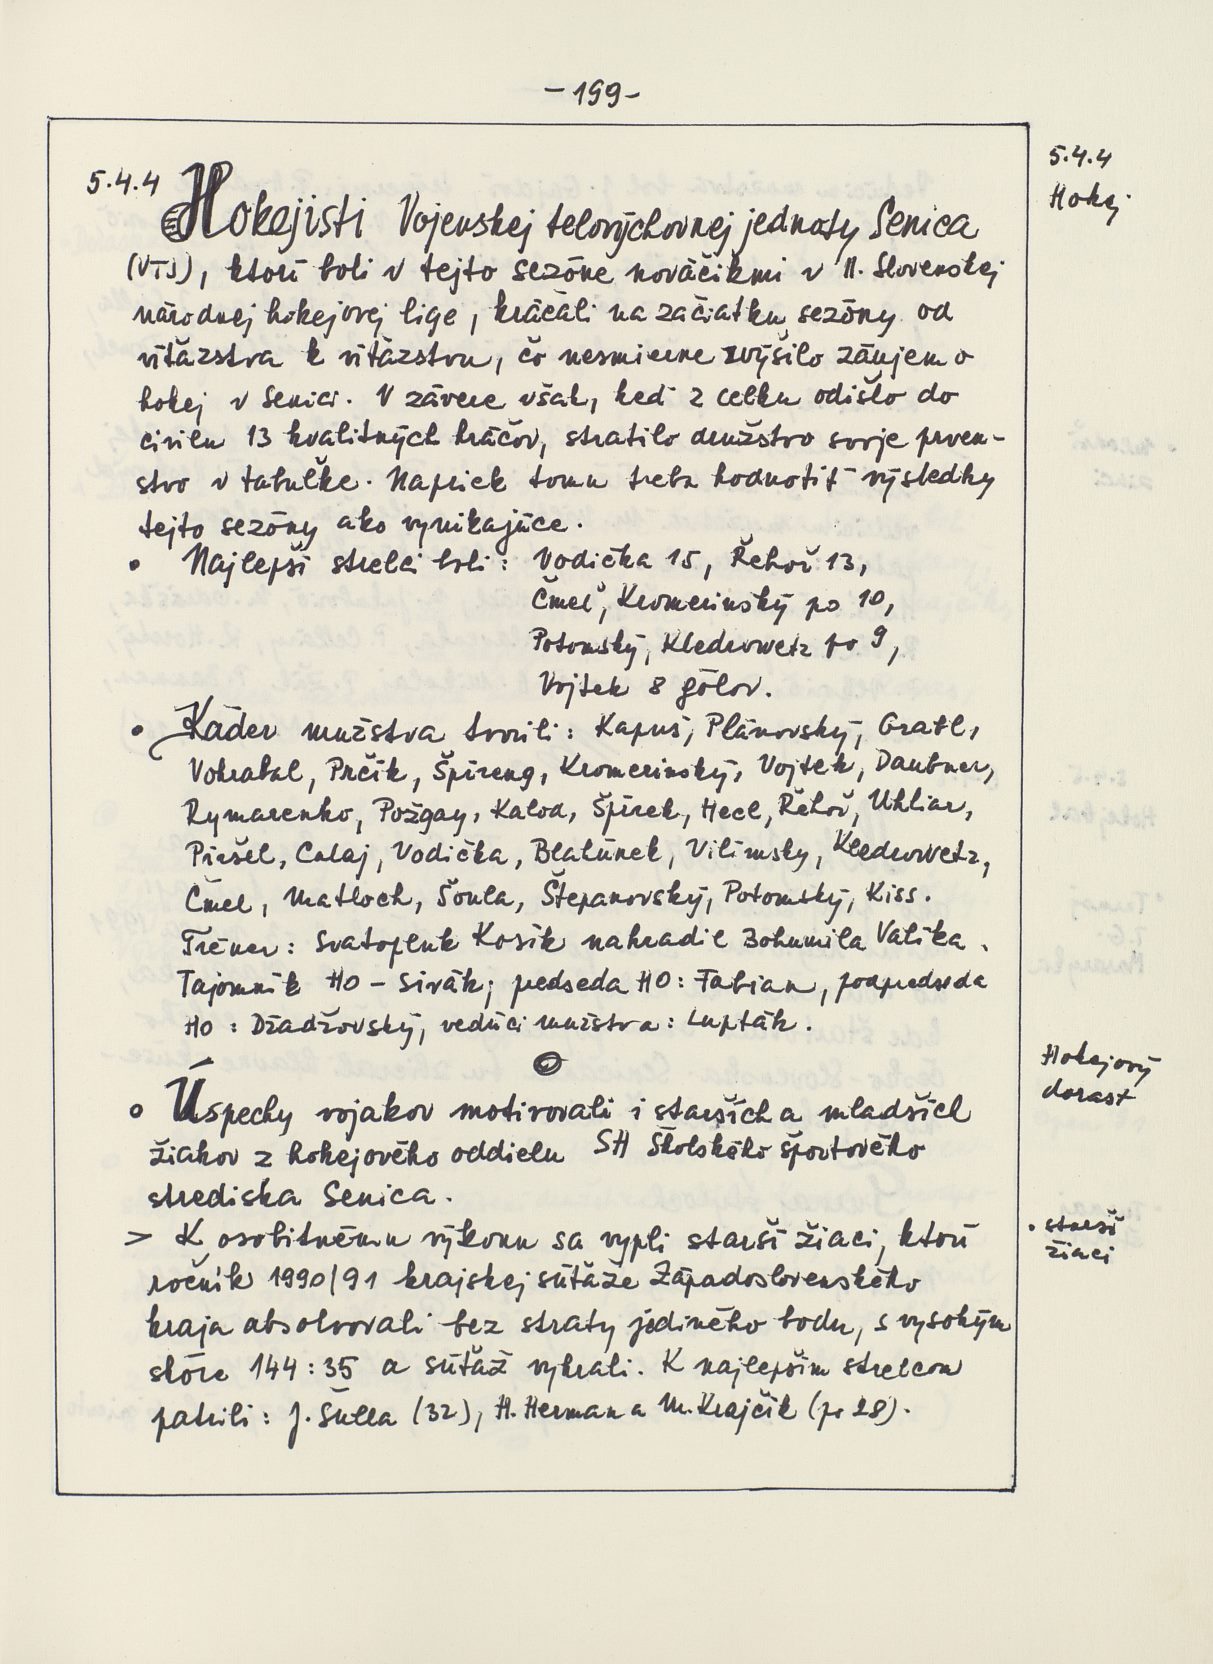 - 199 -
5.4.4
Hokej
5.4.4 Hokejisti Vojenskej telovýchovnej jednoty Senica
(VTJ), ktorí boli v tejto sezóne nováčikmi v II. Slovenskej
národnej hokejovej lige, kráčali na začiatku sezóny od
víťazstva k víťazstvu, čo nesmierne zvýšilo záujem o
hokej v Senici. V závere však, keď z celku odišlo do
civilu 13 kvalitných hráčov, stratilo družstvo svoje prven-
stvo v tabuľke. Napriek tomu treba hodnotiť výsledky
tejto sezóny ako vynikajúce.
• Najlepší strelci boli: Vodička 15, Řehoř 13,
Čmel, Kromerinský po 10,
Potomský, Kledrowetz po 9,
Vojtek 8 gólov.
• Káder mužstva tvorili: Kapuš, Plánovský, Gratl,
Vohrabal, Prčík, Špireng, Kromerinský, Vojtek, Daubner,
Rymarenko, Požgay, Kalod, Špirek, Hecl, Řehoř, Uhliar,
Piršel, Calaj, Vodička, Blahúnek, Vilímsky, Kledrowetz,
Čmel, Matloch, Šoula, Štepanovský, Potomský, Kiss.
Tréner: Svatopluk Kosík nahradil Bohumila Valíka.
Tajomník HO - Sivák; predseda HO: Fabian, podpredseda
HO: Džadžovský, vedúci mužstva: Lupták.
Hokejový
dorast
• Úspechy vojakov motivovali i starších a mladších
žiakov z hokejového oddielu SH Školského športového
strediska Senica.
> K osobitnému výkonu sa vypli starší žiaci, ktorí
• starší
žiaci
ročník 1990/91 krajskej súťaže Západoslovenského
kraja absolvovali bez straty jediného bodu, s vysokým
skóre 144:35 a súťaž vyhrali. K najlepším strelcom
patrili: J. Šulla (32), H. Herman a M. Krajčík (po 28).